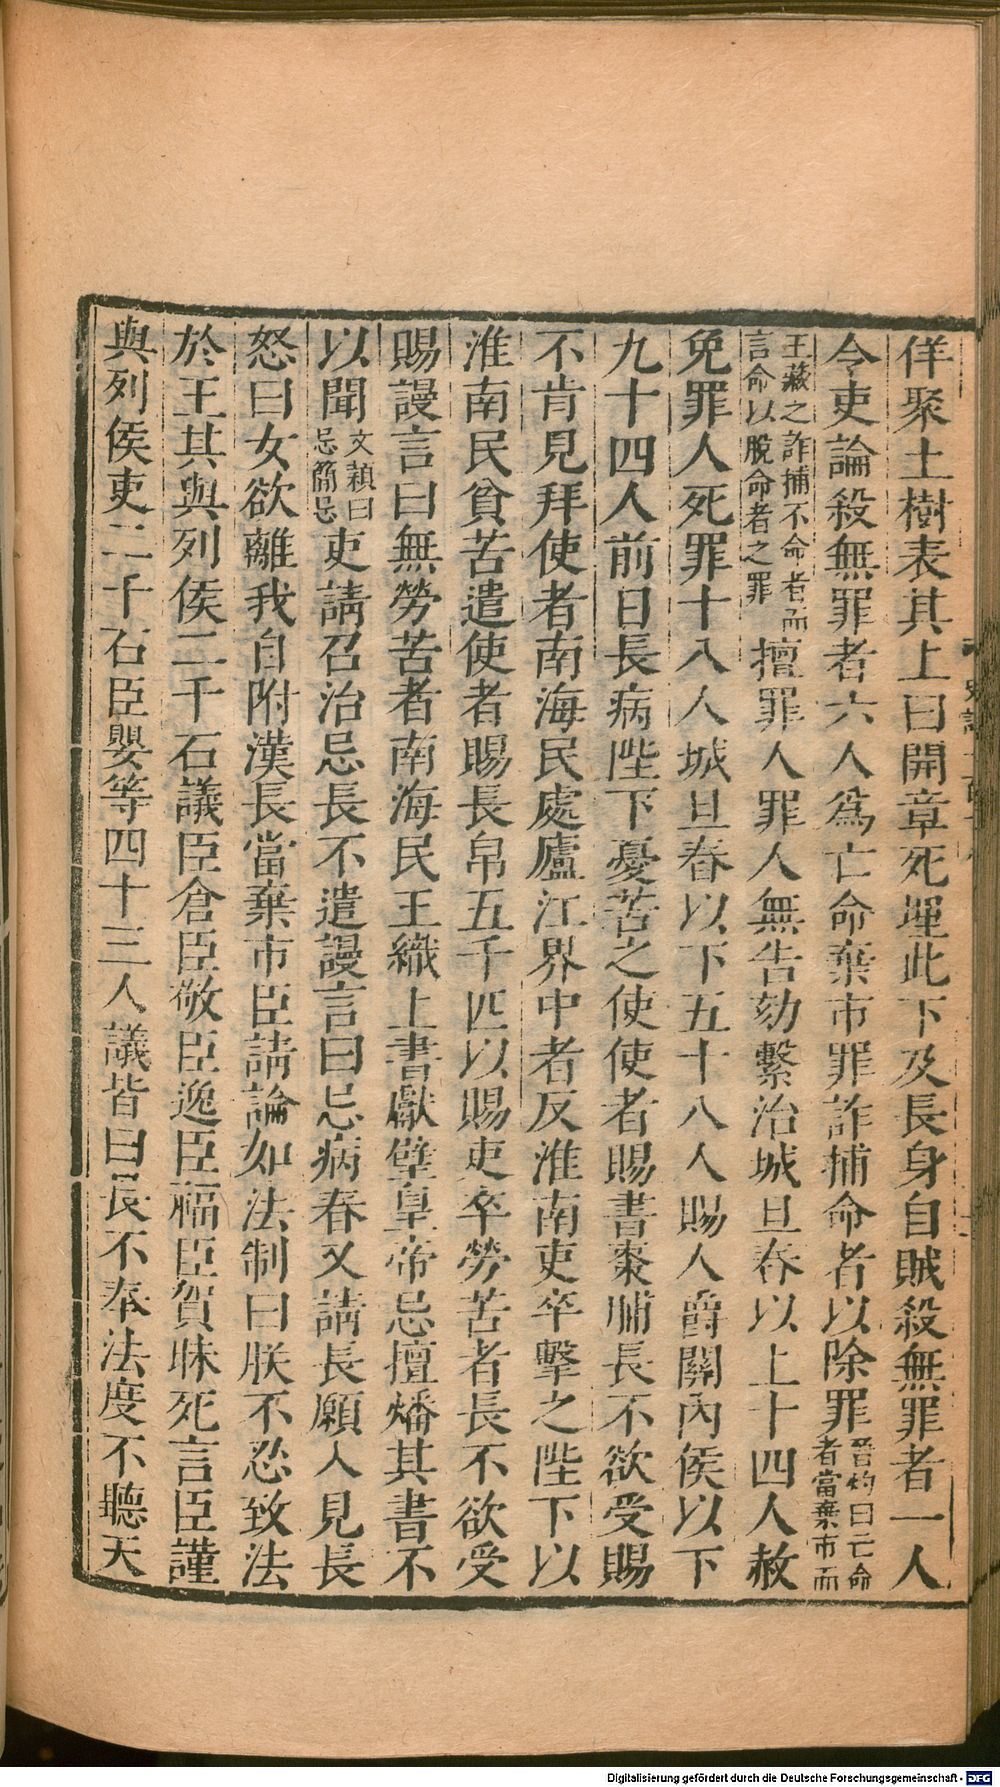 佯聚土樹表其上曰開章死埋此下及長身自賊殺無罪者一人
令吏論殺無罪者六人爲亡命棄市罪詐捕命者以除罪晉灼曰亡命者當棄市而
王藏之詐捕不命者而言命以脫命者之罪擅罪人罪人無告劾繫治城旦舂以上十四人赦
免罪人死罪十八人城旦舂以下五十八人賜人爵關內侯以下
九十四人前日長病陛下憂苦之使使者賜書棗脯長不欲受賜
不肯見拜使者南海民處廬江界中者反淮南吏卒擊之陛下以
淮南民貧苦遣使者賜長帛五千匹以賜吏卒勞苦者長不欲受
賜謾言曰無勞苦者南海民王織上書獻璧皇帝忌擅燔其書不
以聞文穎曰忌簡忌吏請召治忌長不遣謾言曰忌病春又請長願入見長
怒曰女欲離我自附漢長當棄市臣請論如法制曰朕不忍致法
於王其與列侯二千石議臣倉臣敬臣逸臣福臣賀昧死言臣謹
與列侯吏二千石臣嬰等四十三人議皆曰長不奉法度不聽天
Digitalisierung gefördert durch die Deutsche Forschungsgemeinschaft - DFG